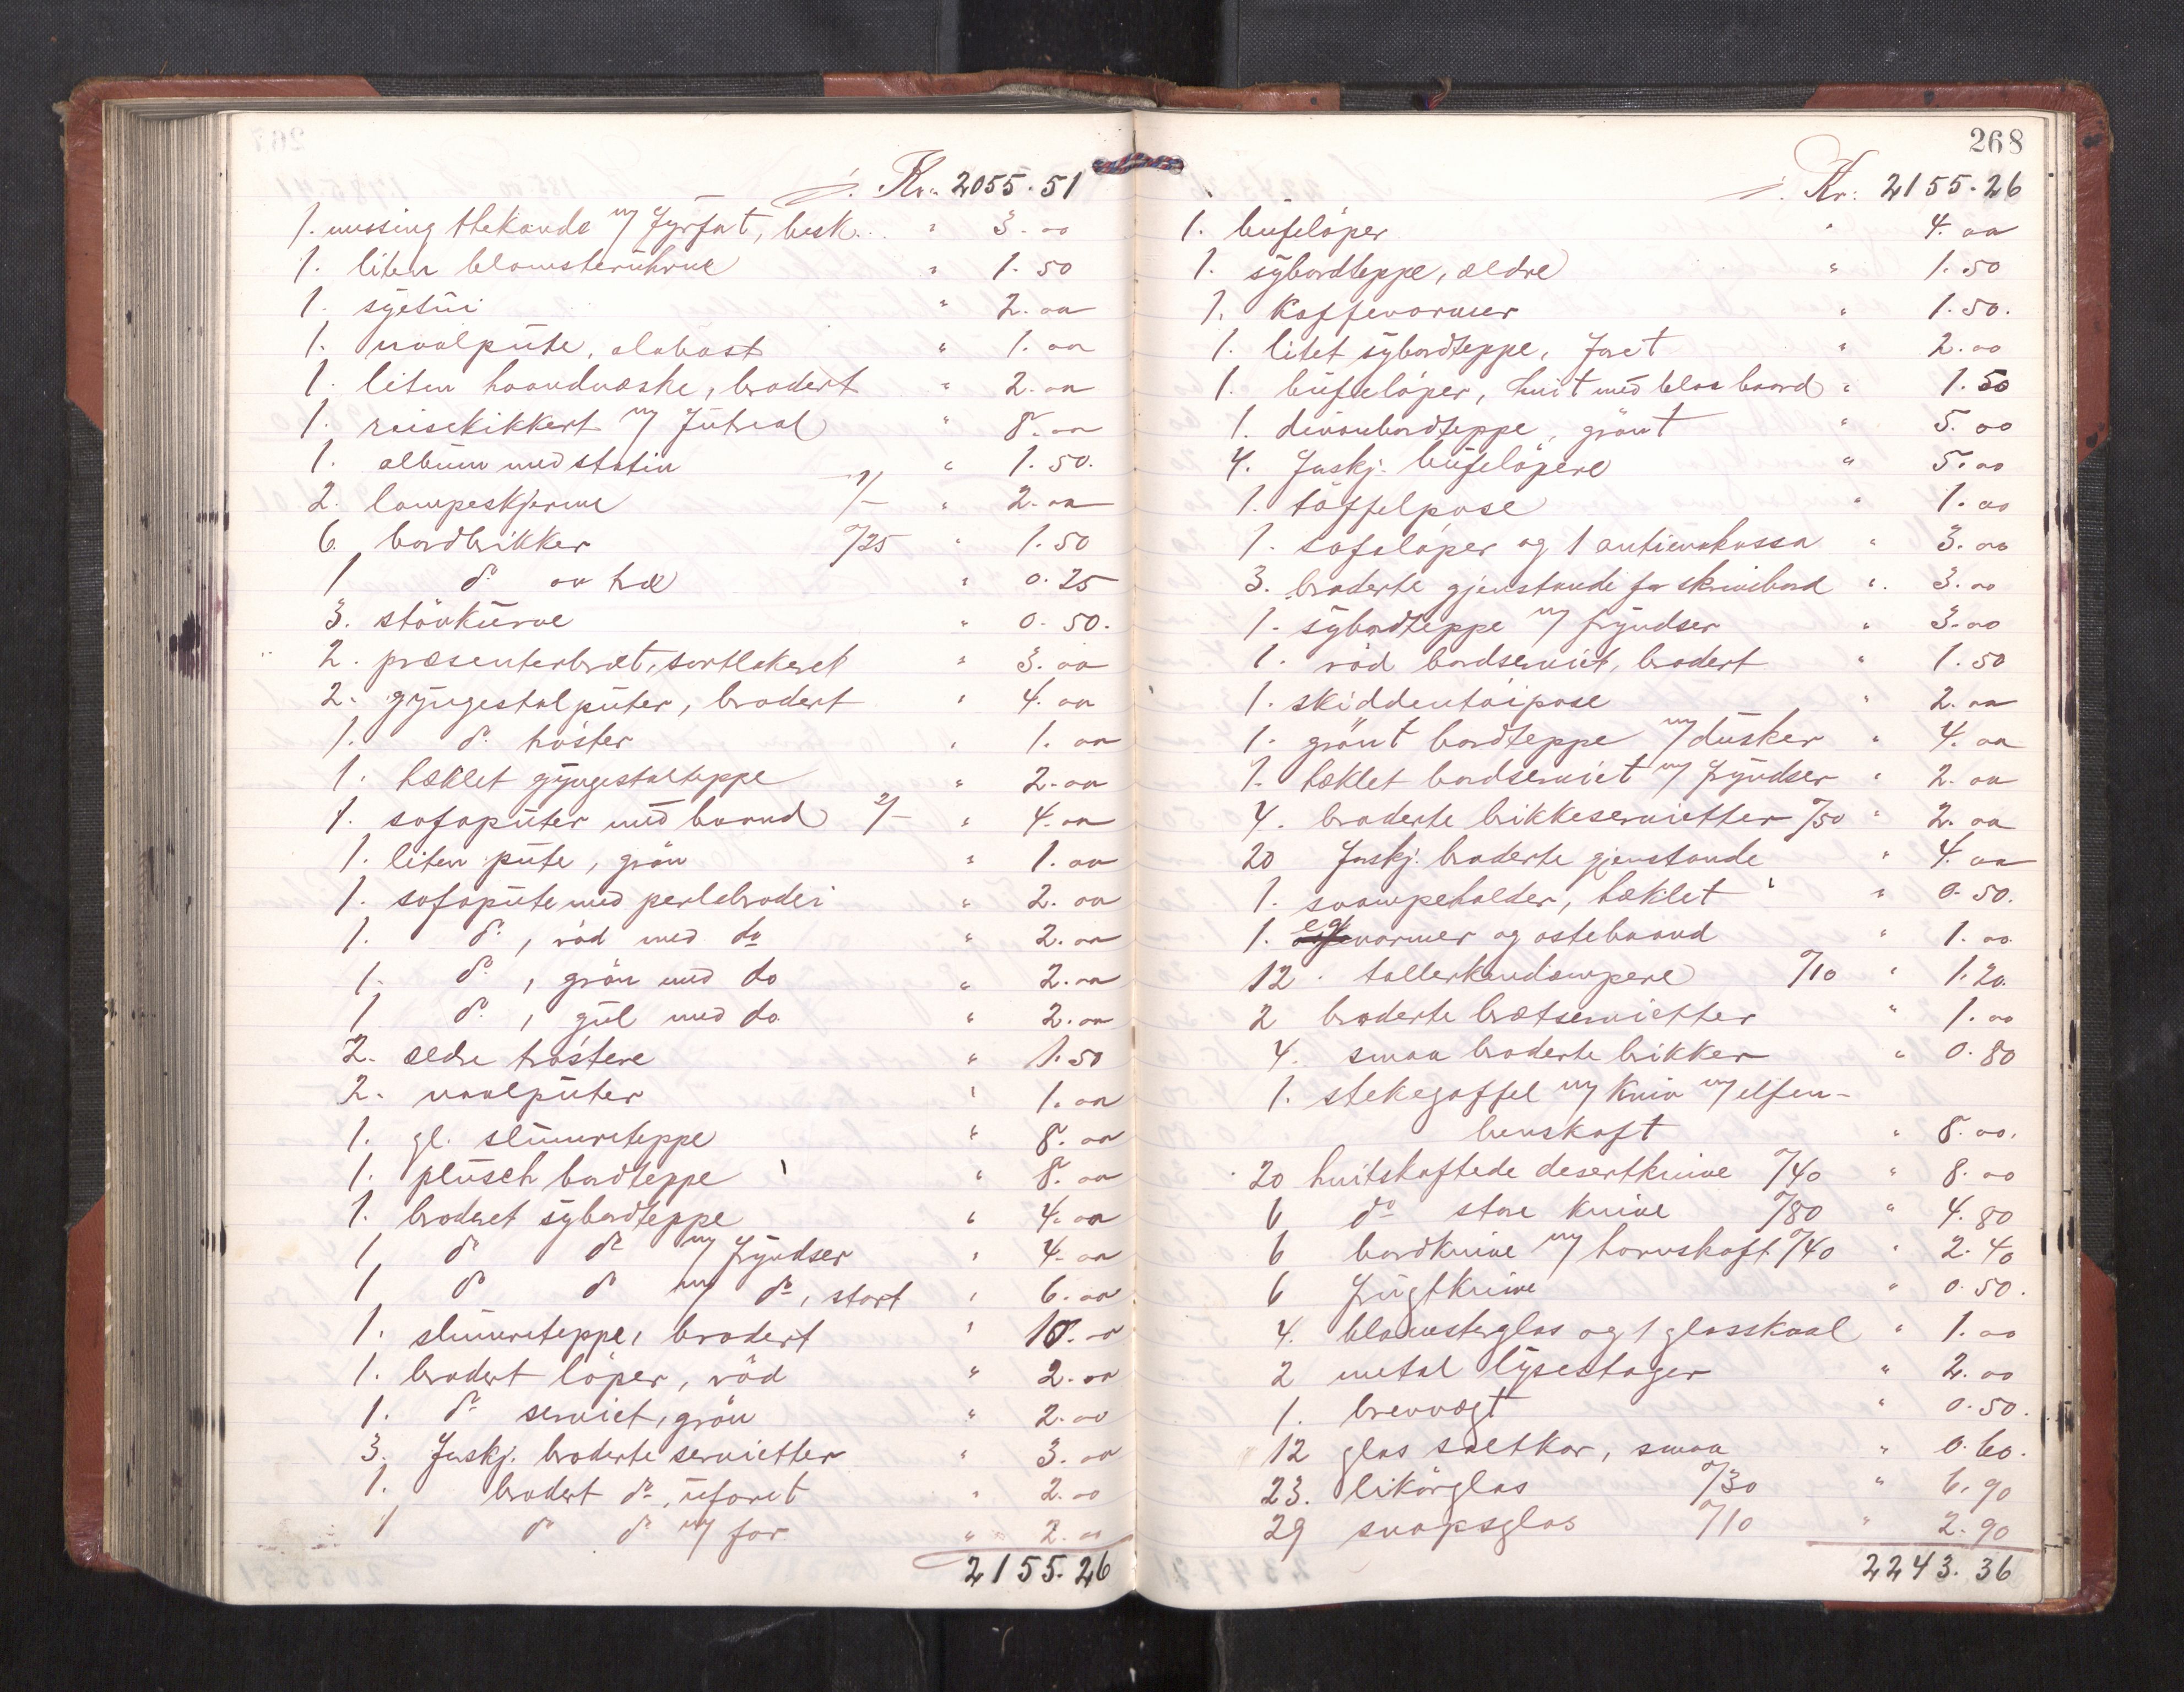 Kr. 2055.51
1. messing thekande m/ fyrfat, besk. " 3.00
1. liten blomsterurne " 1.50
1. syetui " 2.00
1. naalpute, alabast " 1.00
1. liten haandvæske, brodert " 2.00
1. reisekikkert m/ futral " 8.00
1. album med stativ " 1.50.
2. lampeskjerme 1/- " 2.00
6. bordbrikker 0/25 " 1.50
1 do. av træ " 0.25
3. stövkurve " 0.50.
2. præsenterbret, sortlakeret " 3.00
2. gyngestolputer, brodert " 4.00
1. do. tröster " 1.00
1. hæklet gyngestolteppe " 2.00
2. sofaputer med baand 2/- " 4.00
1. liten pute, grön " 1.00
1. sofapute med perlebroderi " 2.00
1. do., röd med do " 2.00
1. do., grön med do " 2.00
1 do., gul med do. " 2.00
2. ældre tröstere " 1.50
2. naalputer " 1.00
1. gl. slumreteppe " 8.00
1. plusch bordteppe " 8.00
1. broderet sybordteppe " 4.00
1, do do m/ fryndser " 4.00
1 do do m/ do, stort " 6.00
1. slumreteppe, brodert " 10.00
1. brodert löper, röd " 2.00
1. do serviet, grön " 2.00
3. forskj. broderte servietter " 3.00
1. brodert do, uforet " 2.00
1 do do m/ for " 2.00
2155.26
268
Kr: 2155.26
1. büfelöper " 4.00
1. sybordteppe, ældre " 1.50
1. Kaffevarmer " 1.50.
1. litet sybordteppe, foret " 2.00
1. büfelöper, hvit med blaa baard " 1.50
1. divanbordteppe, grönt " 5.00
4. forskj. büfelöpere " 5.00
1. töffelpose " 1.00
1. sofalöper og 1 antimakassa " 3.00
3. broderte gjenstande for skrivebord " 3.00
1. sybordteppe m/ fryndser " 3.00
1. röd bordserviet, brodert " 1.50
1. skiddentöipose " 2.00
1. grönt bordteppe m/ dusker " 4.00
1. hæklet bordserviet m/ fryndser " 2.00
4. broderte brikkeservietter 0/50 " 2.00
20 forskj. broderte gjenstande " 4.00
1. svampeholder, hæklet " 0.50.
1. egvarmer og ostebaand " 1.00.
12. tallerkendempere 0/10 " 1.20.
2 broderte bretservietter " 1.00
4. smaa broderte brikker " 0.80
1. stekegaffel m/ Kniv m/ elfen-
benskaft " 8.00.
20 hvitskaftede desertknive 0/40 " 8.00
6 do store knive 0/80 " 4.80
6 bordknive m/ hornskaft 0/40 " 2.40
6 frugtknive " 0.50.
4. blomsterglas og 1 glasskaal " 1.00
2 metal lysestager " 2.00
1. brevvegt " 0.50.
12 glas saltkar, smaa " 0.60.
23. likörglas 0/30 " 6.90
29 snapsglas 0/10 " 2.90
2243.36